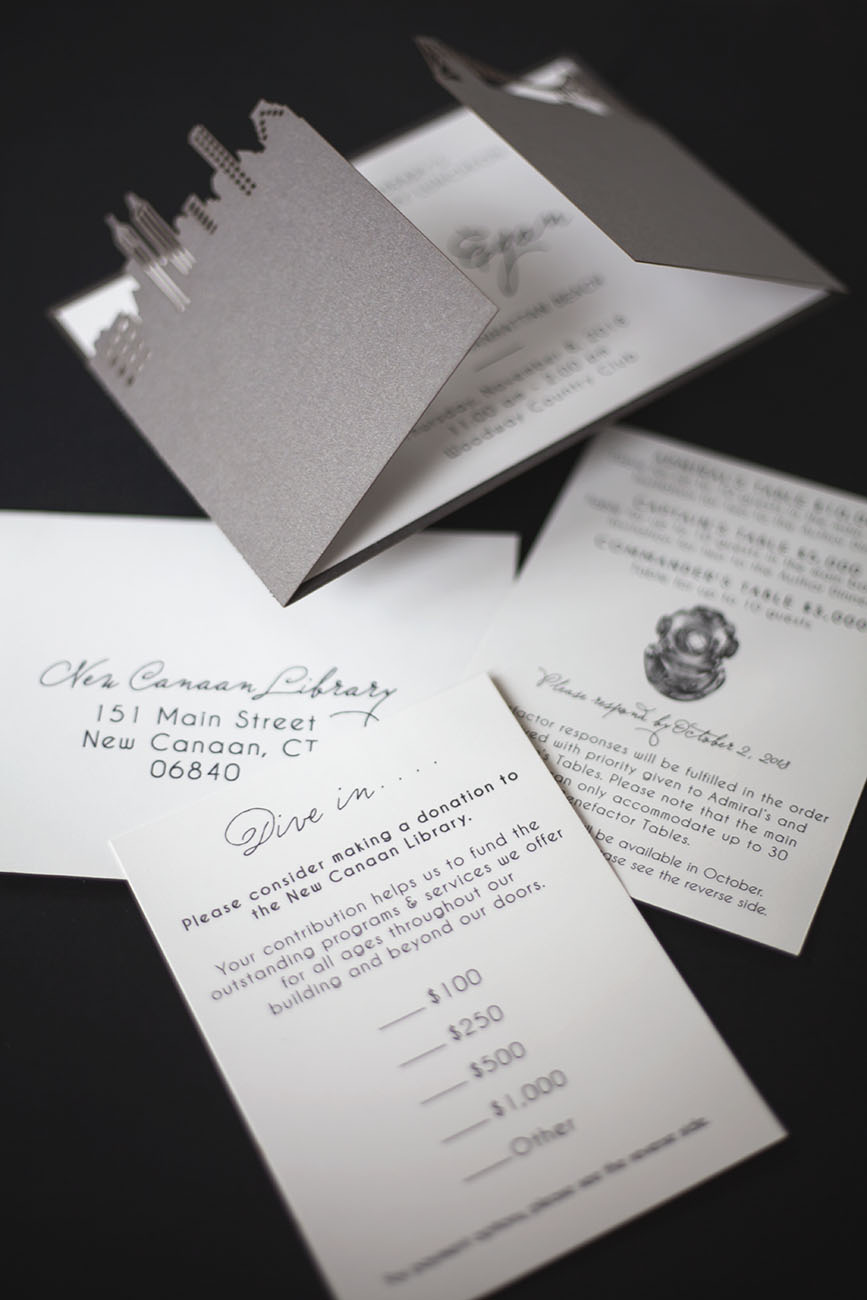 Thursday, November 8, 2018
11:00 am - 2:00 pm
Woodway Country Club
ADMIRAL'S TABLE
CAPTAIN'S TABLE $5,000
Table for up to 10 guests
COMMANDER'S TABLE $3,000
Table for up to 10 guests
Please respond by October 2, 2018
responses will be fulfilled in the order
with priority given to Admiral's and
Tables. Please note that the main
only accommodate up to 30
Benefactor Tables.
be available in October.
see the reverse side.
New Canaan Library
151 Main Street
New Canaan, CT
06840
Dive in....
Please consider making a donation to
the New Canaan Library.
Your contribution helps us to fund the
outstanding programs & services we offer
for all ages throughout our
building and beyond our doors.
___ $100
___ $250
___ $500
___ $1,000
___ Other
For payment options, please see the reverse side.